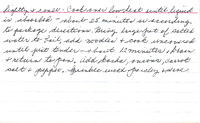 tightly & cover. Cook over low heat until liquid
is absorbed - about 25 minutes or according
to package directions. Bring large pot of salted
water to boil, add noodles & cook uncovered
until just tender - about 12 minutes. Drain
& return to pan. Add leeks, onions, carrot
salt & pepper. Sprinkle with parsley serve